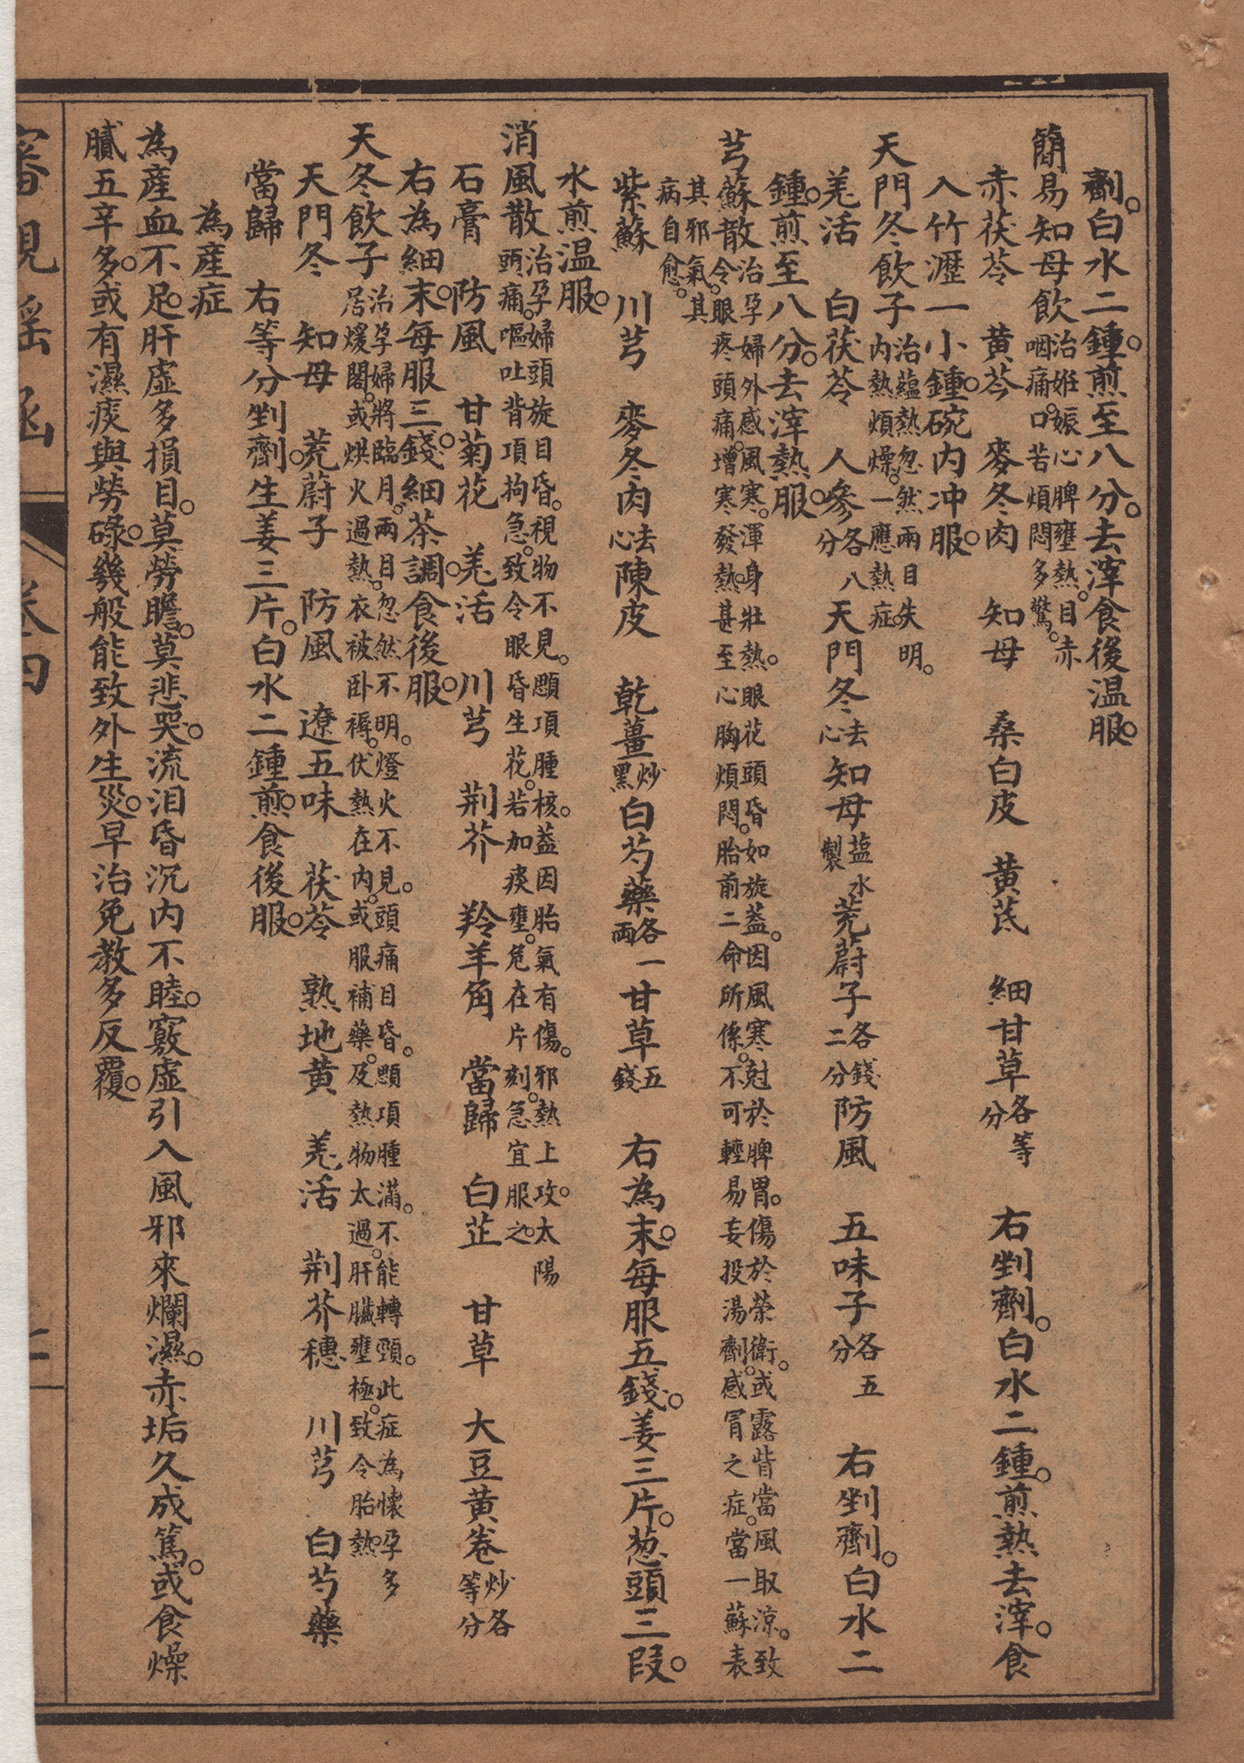 劑。白水二鍾。煎至八分。去滓食後温服。
簡易知母飲 治姙娠心脾壅熱。目赤咽痛。口苦煩悶多驚。
赤茯苓 黄芩 麥冬肉 知母 桑白皮 黄芪 細甘草各等分 右剉劑。白水二鍾。煎熟去滓。食
入竹瀝一小鍾。碗内冲服。
天門冬飲子 治蘊熱忽然兩目失明。内熱煩燥。一應熱症。
羌活 白茯苓 人參各八分 天門冬去心 知母塩水製 茺蔚子各二錢分 防風 五味子各五分 右剉劑。白水二
鍾。煎至八分。去滓熱服。
芎蘇散 治孕婦外感風寒。渾身壯熱。眼花頭昏如旋。葢因風寒尅於脾胃。傷於榮衛。或露背當風取涼。致令眼疼頭痛。增寒發熱。甚至心胸煩悶。胎前二命所係。不可輕易妄投湯劑。感冒之症。當一蘇表其邪氣。其病自愈。
紫蘇 川芎 麥冬肉去心 陳皮 乾薑炒黑 白芍藥各一兩 甘草五錢 右為末。每服五錢。姜三片。葱頭三段。
水煎温服。
消風散 治孕婦頭旋目昏。視物不見。腮項腫核。葢因胎氣有傷。邪熱上攻。太陽頭痛。嘔吐背項拘急。致令眼昏生花。若加痰壅。危在片刻。急宜服之。
石膏 防風 甘菊花 羌活 川芎 荆芥 羚羊角 當歸 白芷 甘草 大豆黄卷炒各等分
右為細末。每服三錢。細茶調。食後服。
天冬飲子 治孕婦將臨月。兩目忽然不明。燈火不見。頭痛目昏。腮項腫滿。不能轉頸。此症為懷孕多居煖閣。或烘火過熱。衣被卧褥。伏熱在内。或服補藥。及熱物太過。肝臟壅極。致令胎熱。
天門冬 知母 茺蔚子 防風 遼五味 茯苓 熟地黄 羌活 荆芥穗 川芎 白芍藥
當歸 右等分剉劑。生姜三片。白水二鍾煎。食後服。
為産症
為産血不足。肝虚多損目。草勞瞻。莫悲哭。流泪昏沉内不睦。竅虚引入風邪來爛濕。赤垢久成篤。或食燥
膩五辛多。或有濕痰與勞碌。幾般能致外生災。早治免教多反覆。
審視瑶函 卷四